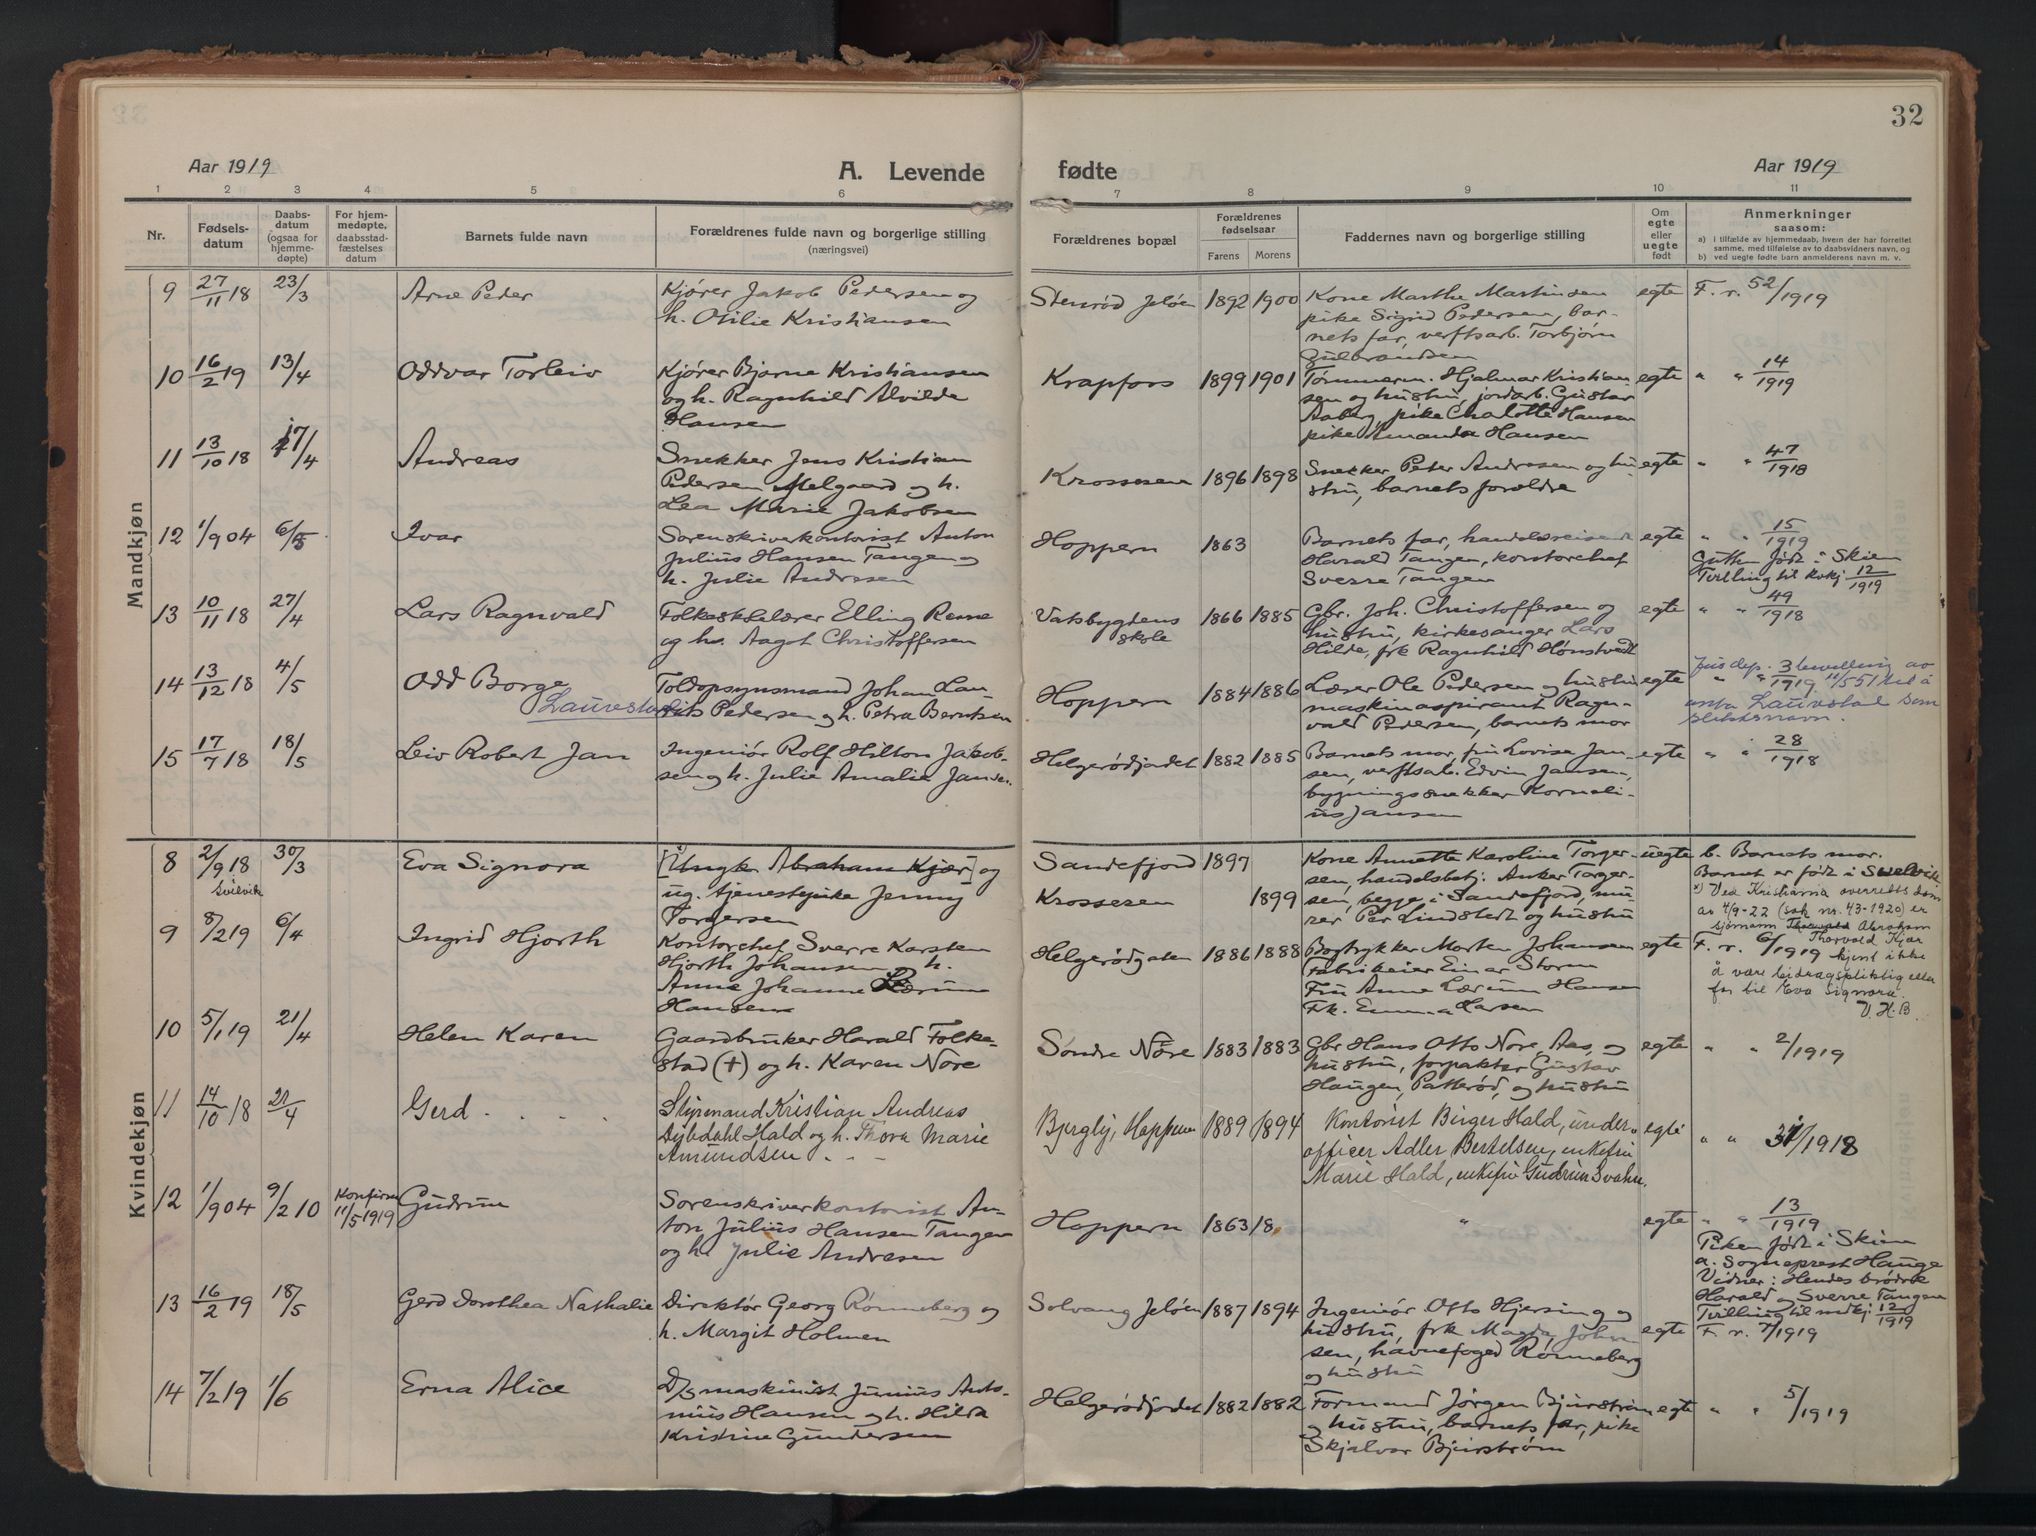 32
Aar 1919
A. Levende
fødte
Aar 1919
1 2 3 4 5 6 7 8 9 10 11
Nr.
Fødsels-
datum
Daabs-
datum
(ogsaa for
hjemme-
døpte)
For hjem-
medøpte,
daabsstad-
fæstelses
datum
Barnets fulde navn
Forældrenes fulde navn og borgerlige stilling
(næringsvei)
Forældrenes bopæl
Forældrenes
fødselsaar
Farens Morens
Faddernes navn og borgerlige stilling
Om
egte
eller
uegte
født
Anmerkninger
saasom:
a) i tilfælde av hjemmedaab, hvem der har forrettet
samme, med tilføielse av to daabsvidners navn, og
b) ved uegte fødte barn anmelderens navn m. v.
Mandkjøn
9 27/11 18 23/3 Arne Peder
Kjører Jakob Pedersen og
h. Otilie Kristiansen
Stenrød Jeløen 1892 1900
Kone Marthe Martinsen
pike Sigrid Pedersen, bar-
nets far, verftsarb. Torbjørn
Gulbrandsen
egte F. r. 52/1919
10 16/2 19 13/4 Oddvar Torleiv
Kjører Bjarne Kristiansen
og h. Ragnhild Alvilde
Hansen
Krapfoss 1899 1901
Tømmerm. Hjalmar Kristian-
sen og hustru, jordarb. Gustav
Aaberg, pike Chalotte Hansen
pike Amanda Hansen
egte " " 14/1919
11 13/10 18 17/4 Andreas
Snekker Jens Kristian
Pedersen Melgaard og h.
Lea Marie Jakobsen
Krosseren 1896 1898
Snekker Peter Andresen og hu-
stru, barnets forældre
egte " " 47/1918
12 1/9 04 6/5 Ivar
Sorenskriverkontorist Anton
Julius Hansen Tangen og
h. Julie Andresen
Hoppern 1863
Barnets far, handelsreisende
Harald Tangen, kontorchef
Sverre Tangen
egte " " 15/1919
Gutten født i Skien
Tvilling til kvkj 12/1919
13 10/11 18 27/4 Lars Ragnvald
Folkeskolelærer Elling Reme
og h. Aagot Christoffersen
Vatsbygdens
skole
1866 1885
Gbr. Joh. Christoffersen og
hustru, kirkesanger Lars
Hilde, frk Ragnhild Hønstvedt
egte " " 49/1918
14 13/12 18 4/5 Odd Borge
Lauvestad
Toldopsynsmand Johan Lau-
rits Pedersen og h. Petra Berntsen
Hoppern 1884 1886
Læser Ole Pedersen og hustru
maskinaspirant Ragn-
vald Pedersen, barnets mor
egte " " 3/1919
Jus dep. bevilling av
11/5 51 til å
anta Lauvstad som
slektsnavn.
15 17/7 18 18/5 Leiv Robert Jan
Ingeniør Rolf Hilton Jakob-
sen og h. Julie Amalie Jansen
Helgerødjordet 1882 1885
Barnets mor, fru Lovise Jan-
sen, verftsarb. Edvin Jansen,
bygningssnekker Korneli-
us Jansen
egte " " 28/1918
Kvindekjøn
8 2/9 18 30/3 Eva Signora
Svelvik
[Ungk. Abraham Kjær] og
ug. tjenestepike Jenny
Torgersen
Sandefjord 1897
Krosseren 1899
Kone Annette Karoline Torger-
sen, handelsbetj. Anker Torger-
sen, begge i Sandefjord, mu-
rer Per Lindstedt og hustru
uegte b. Barnets mor.
Barnet er født i Svelvik
x) Ved Kristiania overretts dom
av 4/9-22 (sak nr. 43-1920) er
sjømann Thorvald Abraham
Thorvald Kjær
kjent ikke
å være bidragspliktig eller
far til Eva Signora.
V. H. B.
9 8/2 19 6/4 Ingrid Hjorth
Kontorchef Sverre Karsten
Hjorth Johansen h.
Anne Johanne Lærum
Hansen
Helgerødgaten 1886 1888
Bogtrykker Morten Johansen
Fabrikeier Einar Storm
Fru Anne Lærum Hansen
Frk. Emma Larsen
egte F. r. 6/1919
10 5/1 19 21/4 Helen Karen
Gaardbruker Harald Folke-
stad (+) og h. Karen Nore
Søndre Nøre 1883 1883
Gbr Hans Otto Nore, Aas, og
hustru, forpakter Gustav
Haugen, Patterød, og hustru
egte " " 2/1919
11 14/10 18 21/4 Gerd
Styrmand Kristian Andreas
Dybdahl Hald og h. Thora Marie
Amundsen
Bjergly, Hoppern 1889 1894
Kontorist Birger Hald, under-
officer Adler Bertelsen, enkefru
Marie Hald, enkefru Gudrun Svahn.
egte " " 31/1918
12 1/9 04 9/2 10 Konfirm
11/5 1919
Gudrun
Sorenskriverkontorist An-
ton Julius Hansen Tangen
og h. Julie Andresen
Hoppern 1863 18
"
egte " " 13/1919
Piken født i Skien
a. Sogneprest Hauge
Vidner: Hendes brødre
Harald og Sverre Tangen
Tvilling til mdkj 12/1919
13 16/2 19 18/5 Gerd Dorothea Nathalie
Direktør Georg Rønneberg og
h. Margit Holmen
Solvang Jeløen 1887 1894
Ingeniør Otto Hjersing og
hustru, frk Magda Johan-
sen, havnefoged Rønneberg
og hustru
egte F. r. 7/1919
14 7/2 19 1/6 Erna Alice
D/s maskinist Junius Anto-
nius Hansen og h. Hilda
Kristine Gundersen
Helgerødjordet 1882 1882
Formand Jørgen Bjurstrøm
og hustru, barnets far, pike
Skjalvor Bjurstrøm
egte " " 5/1919